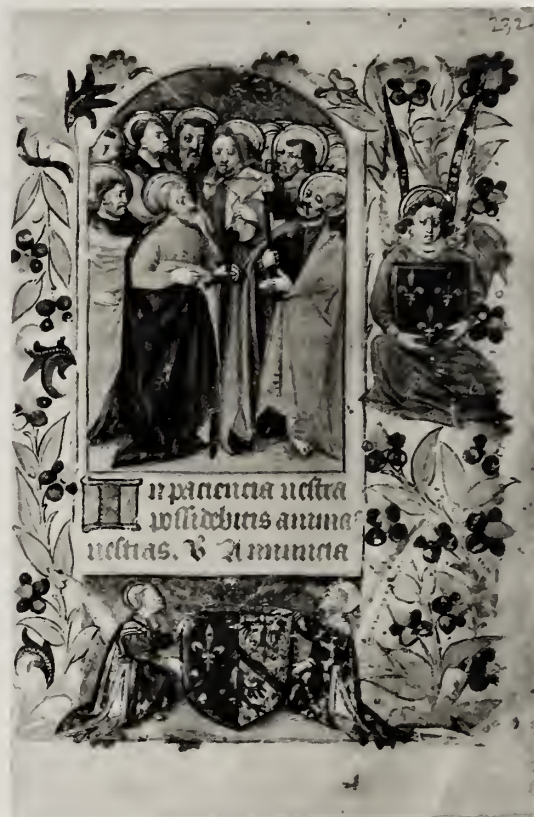 232
In paciencia vestra
possidebitis animas
vestras. V Annuncia